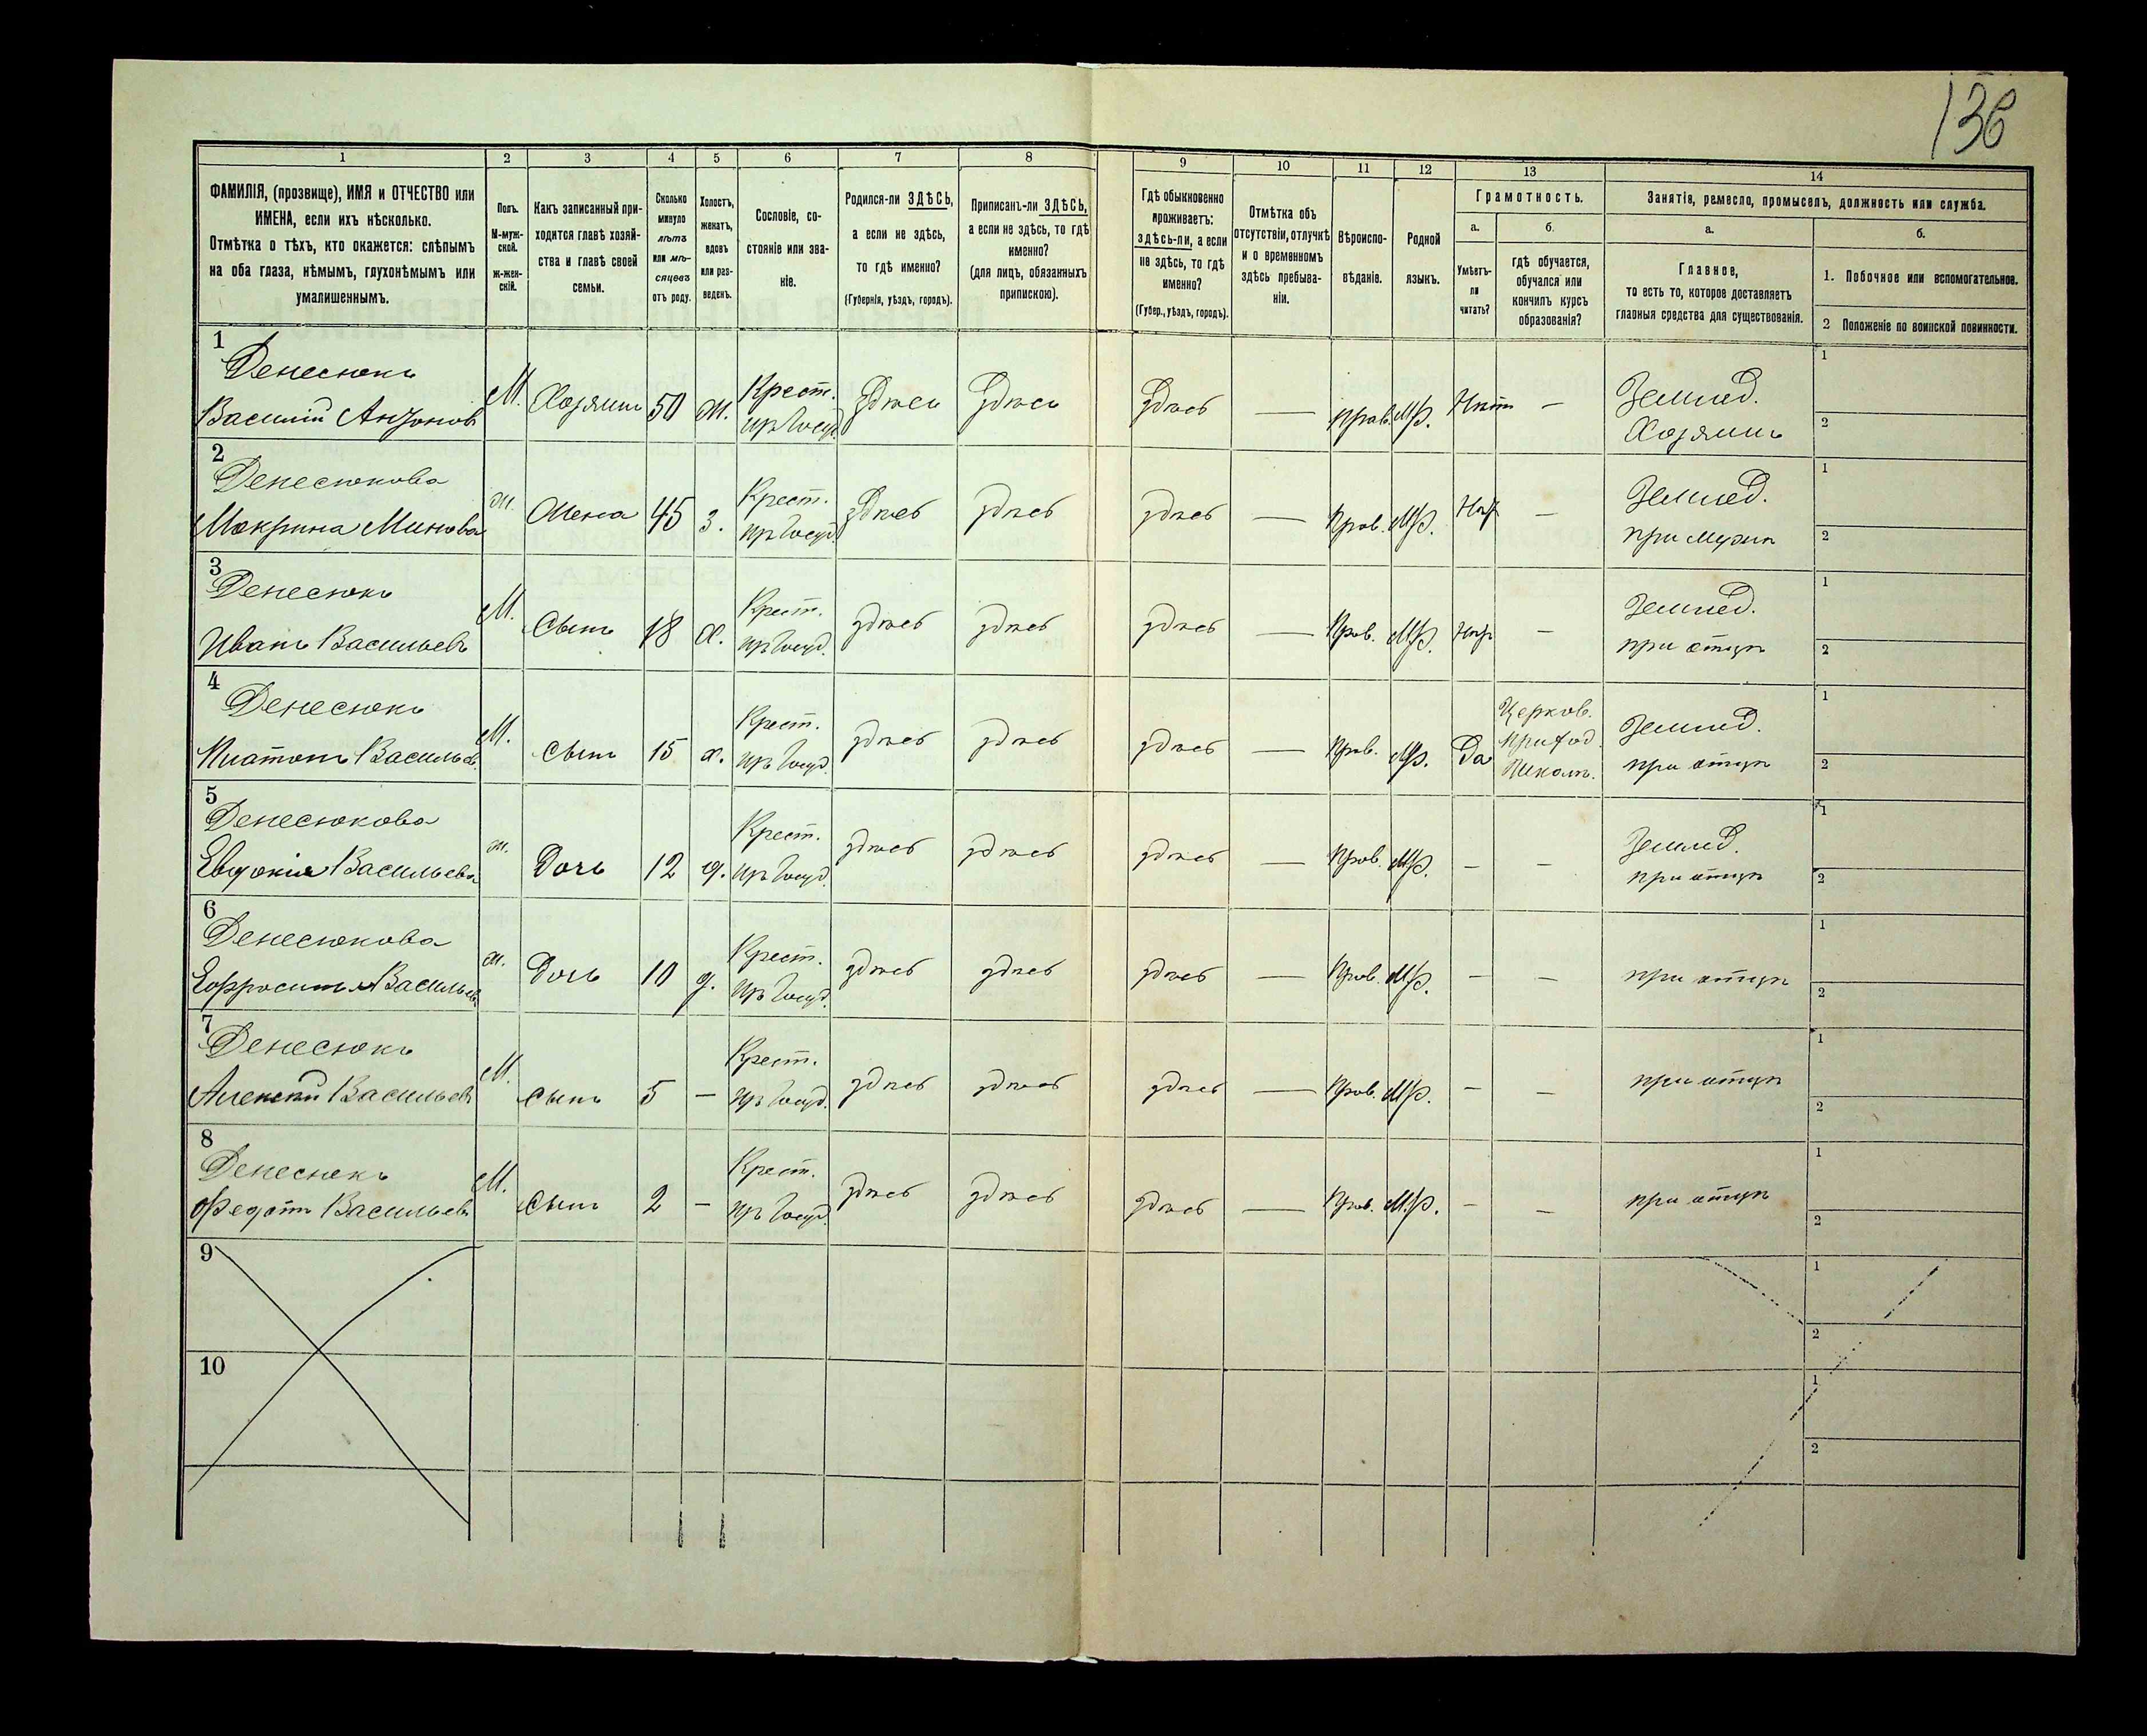 136
1 2 3 4 5 6 7 8 9 10 11 12 13 14
ФАМИЛІЯ, (прозвище), ИМЯ и ОТЧЕСТВО или
ИМЕНА, если ихъ нѣсколько.
Отмѣтка о тѣхъ, кто окажется: слѣпымъ
на оба глаза, нѣмымъ, глухонѣмымъ или
умалишеннымъ.
Полъ.
М-муж-
ской.
ж-жен-
скій.
Какъ записанный при-
ходится главѣ хозяй-
ства и главѣ своей
семьи.
Сколько
минуло
лѣтъ
или мѣ-
сяцевъ
отъ роду.
Холостъ,
женатъ,
вдовъ
или раз-
веденъ.
Сословіе, со-
стояніе или зва-
ніе.
Родился-ли ЗДѢСЬ,
а если не здѣсь,
то гдѣ именно?
(Губернія, уѣздъ, городъ).
Приписанъ-ли ЗДѢСЬ,
а если не здѣсь, то гдѣ
именно?
(для лицъ, обязанныхъ
припискою).
Гдѣ обыкновенно
проживаетъ:
здѣсь-ли, а если
не здѣсь, то гдѣ
именно?
(Губер., уѣздъ, городъ).
Отмѣтка объ
отсутствіи, отлучкѣ
и о временномъ
здѣсь пребыва-
ніи.
Вѣроиспо-
вѣданіе.
Родной
языкъ.
Грамотность.
а.
Умѣетъ-
ли
читать?
б.
гдѣ обучается,
обучался или
кончилъ курсъ
образованія?
Занятія, ремесло, промыселъ, должность или служба.
а.
Главное,
то есть то, которое доставляетъ
главныя средства для существованія.
б.
1. Побочное или вспомогательное.
2 Положеніе по воинской повинности.
1
Денесюкъ
Василій Антоновъ
М. Хозяинъ 50 ж. Крест.
изъ Госуд. здѣсь здѣсь здѣсь — Прав. Мр. Нѣтъ —
Землед.
Хозяинъ
1
2
2
Денесюкова
Макрина Минова
ж. Жена 45 з. Крест.
изъ Госуд. здѣсь здѣсь здѣсь — Прав. Мр. Нѣт —
Землед.
при мужѣ
1
2
3
Денесюкъ
Иванъ Васильевъ
М. Сынъ 18 х. Крест.
изъ Госуд. здѣсь здѣсь здѣсь — Прав. Мр. Нѣт —
Землед.
при отцѣ
1
2
4
Денесюкъ
Платонъ Васильев.
М. Сынъ 15 х. Крест.
изъ Госуд. здѣсь здѣсь здѣсь — Прав. Мр. Да
Церков.
приход.
Школѣ.
Землед.
при отцѣ
1
2
5
Денесюкова
Евдокія Васильева
ж. Дочь 12 д. Крест.
изъ Госуд. здѣсь здѣсь здѣсь — Прав. Мр. — —
Землед.
при отцѣ
1
2
6
Денесюкова
Ж. Дочь 10 д. Крест.
изъ Госуд. здѣсь здѣсь здѣсь — Прав. Мр. — —
при отцѣ
1
2
7
Денесюкъ
Алексѣй Васильевъ
М. Сынъ 5 — Крест.
изъ Госуд. здѣсь здѣсь здѣсь — Прав. Мр. — —
при отцѣ
1
2
8
Денесюкъ
Федотъ Васильевъ
М. Сынъ 2 — Крест.
изъ Госуд. здѣсь здѣсь здѣсь — Прав. М.р. — —
при отцѣ
1
2
9
1
2
10
1
2